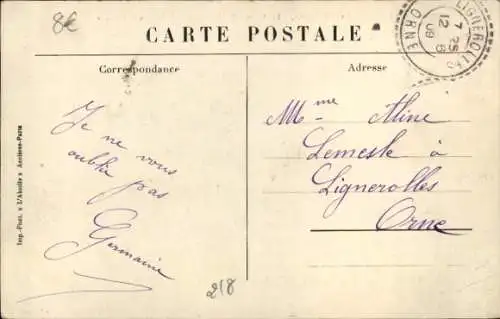 8€
CARTE POSTALE
LIGNEROLLES
7 25
12 8
09
ORNE
Correspondance
Adresse
Je ne vous
oublie pas
Germaine
Mme Aline
Lemesle à
Lignerolles
Orne
218
Imp.-Phot. « L'Abeille » Asnières-Paris